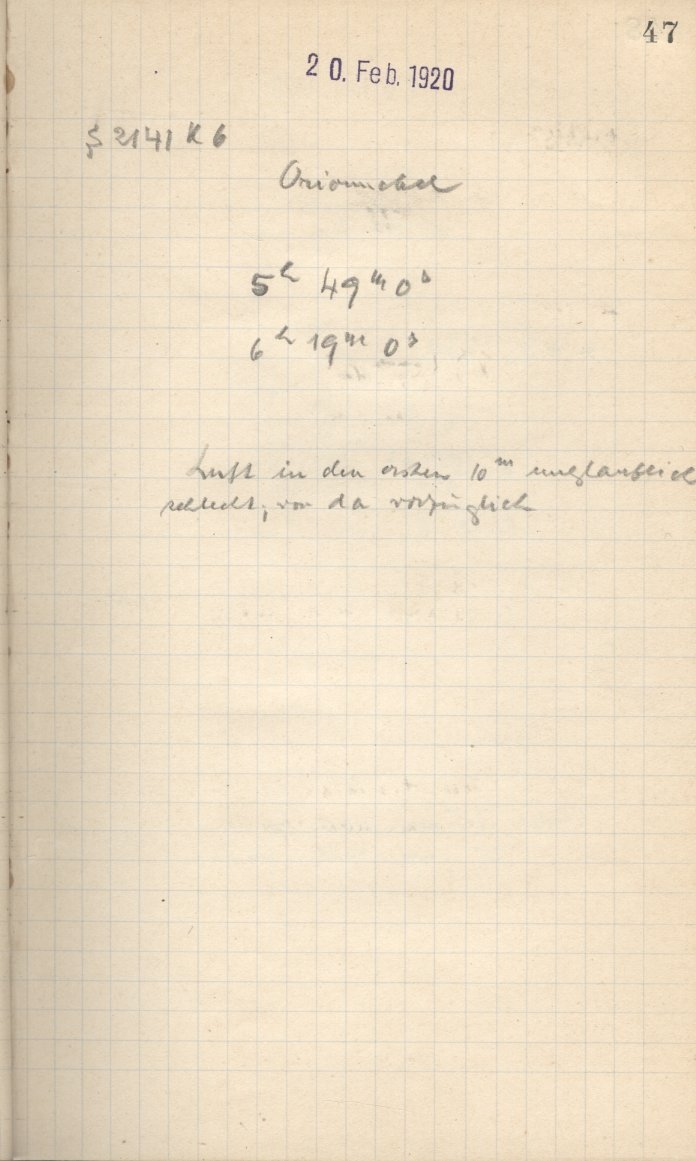 47
20. Feb. 1920
2141 K 6
Orionnebel
5h 49m 0s
6h 19m 0s
Luft in den ersten 10m unglaublich
schlecht, von da vorzüglich